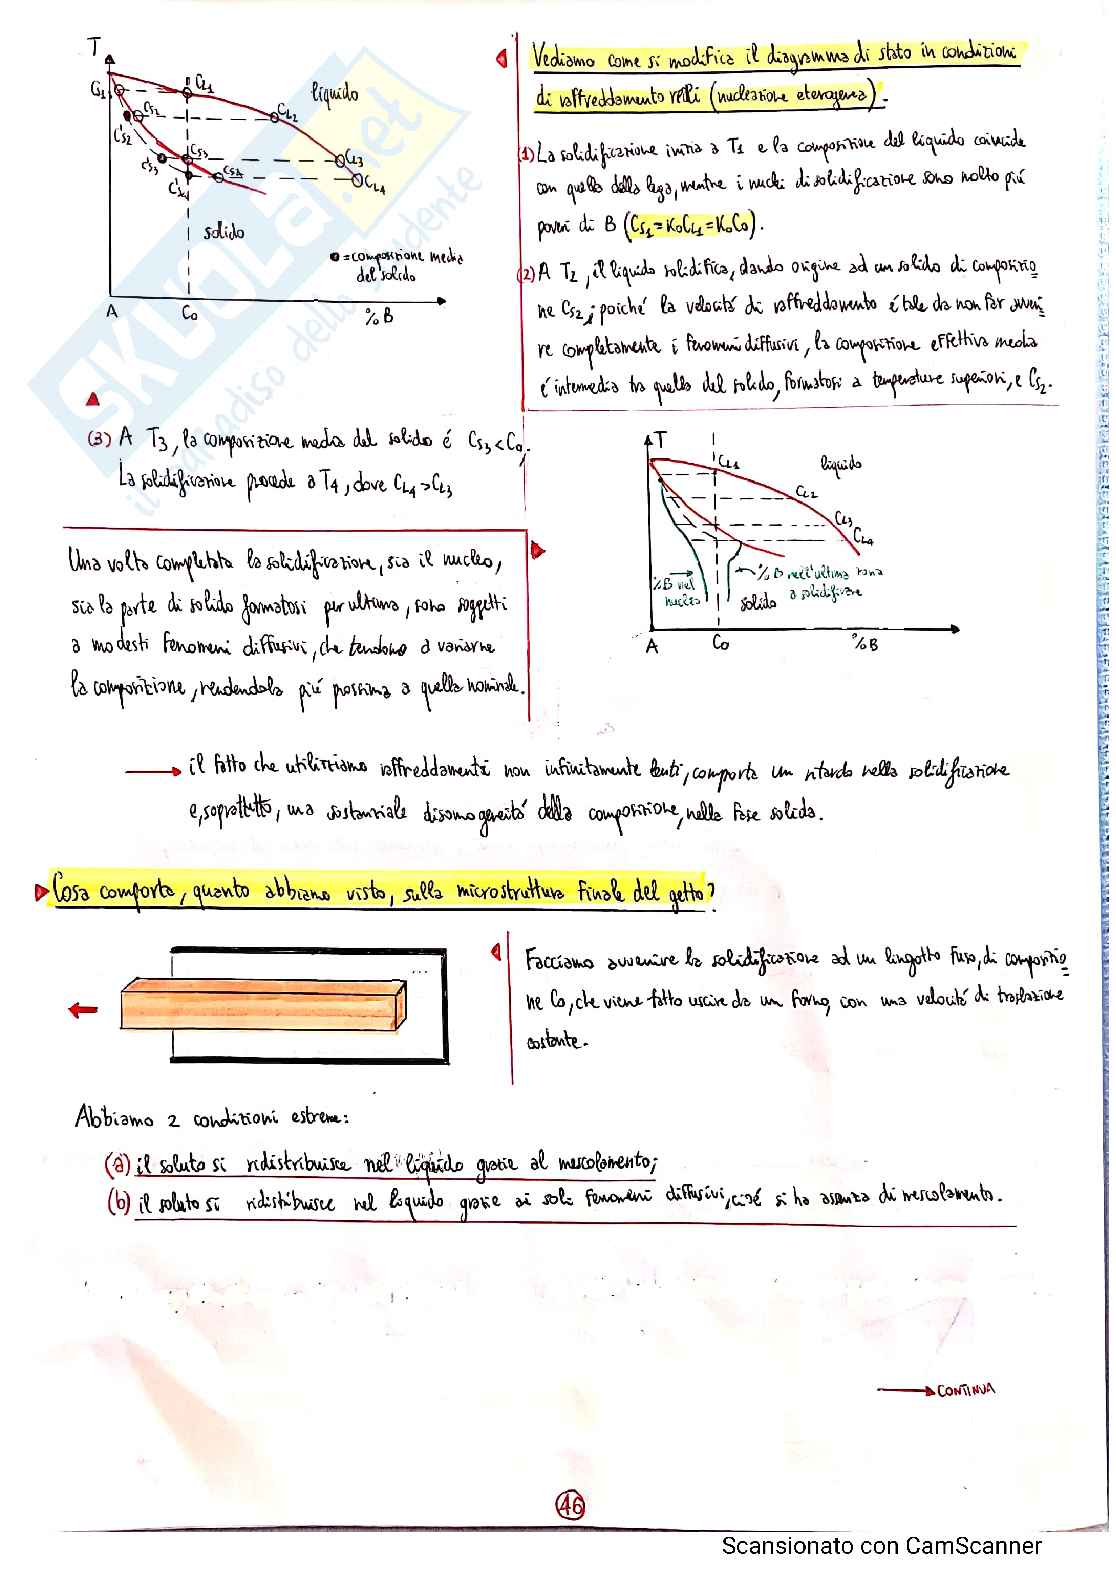 T
Cs1
CL1
liquido
Cs2
CL2
C's2
Cs3
CL3
C's3
Cs4
CL4
C's4
solido
= composizione media
del solido
A
Co
% B
Vediamo come si modifica il diagramma di stato in condizioni
di raffreddamento reali (nucleazione eterogenea).
(1) La solidificazione inizia a T1 e la composizione del liquido coincide
con quella della lega, mentre i nuclei di solidificazione sono molto più
poveri di B (Cs1=KoCL1=KoCo).
(2) A T2, il liquido solidifica, dando origine ad un solido di composizio
ne Cs2; poiché la velocità di raffreddamento é tale da non far avveni
re completamente i fenomeni diffusivi, la composizione effettiva media
é intermedia tra quella del solido, formatosi a temperature superiori, e Cs2.
(3) A T3, la composizione media del solido é Cs3<Co.
La solidificazione procede a T4, dove CL4>CL3
T
CL1
liquido
CL2
CL3
CL4
%B nel
nucleo
%B nell'ultima zona
a solidificare
solido
A
Co
%B
Una volta completata la solidificazione, sia il nucleo,
sia la parte di solido formatosi per ultima, sono soggetti
a modesti fenomeni diffusivi, che tendono a variarne
la composizione, rendendola più prossima a quella nominale.
il fatto che utilizziamo raffreddamenti non infinitamente lenti, comporta un ritardo nella solidificazione
e, soprattutto, una sostanziale disomogeneità della composizione, nella fase solida.
Cosa comporta, quanto abbiamo visto, sulla microstruttura finale del getto?
...
Facciamo avvenire la solidificazione ad un lingotto fuso, di composizio
ne Co, che viene fatto uscire da un forno, con una velocità di traslazione
costante.
Abbiamo 2 condizioni estreme:
(a) il soluto si ridistribuisce nel liquido grazie al mescolamento;
(b) il soluto si ridistibuisce nel liquido grazie ai soli fenomeni diffusivi, cioé si ha assenza di mescolamento.
CONTINUA
46
Scansionato con CamScanner
SKUOLA.net
il paradiso dello studente